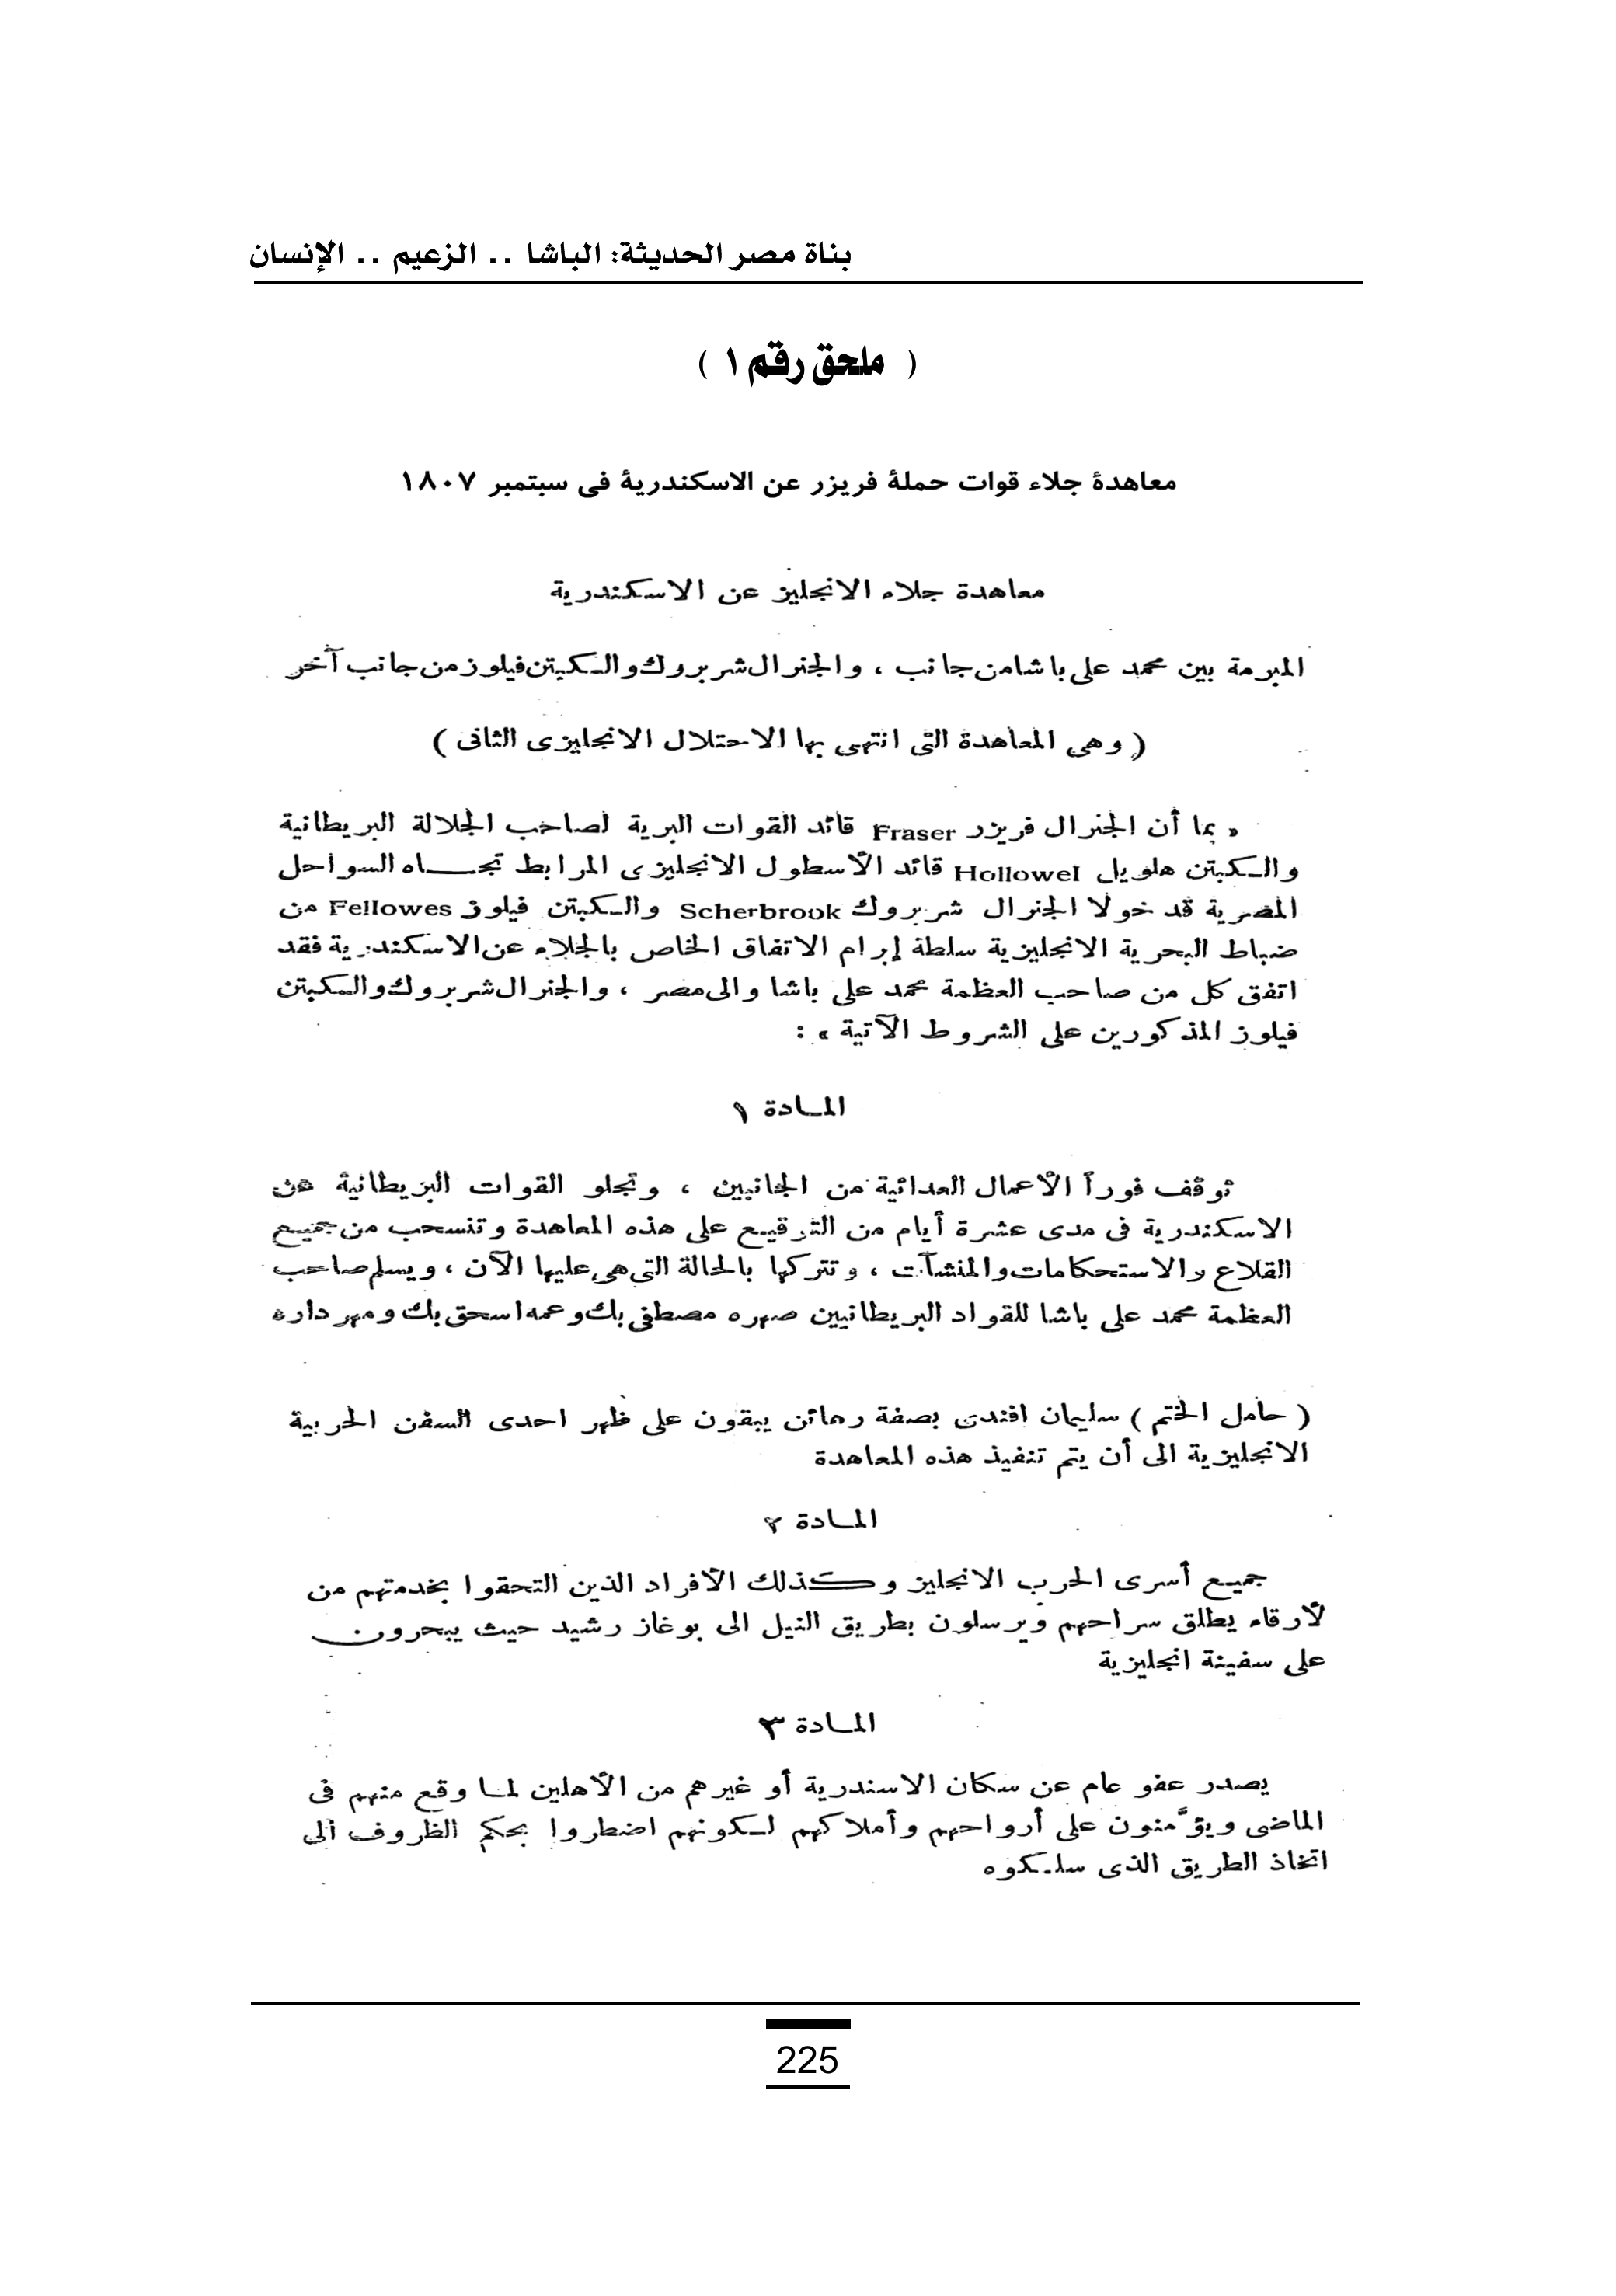 بناة مصر الحديثة: الباشا .. الزعيم .. الإنسان
( ملحق رقم ١ )
معاهدة جلاء قوات حملة فريزر عن الاسكندرية فى سبتمبر ١٨٠٧
معاهدة جلاء الانجليز عن الاسكندرية
المبرمة بين محمد على باشا من جانب ، والجنرال شربروك والكبتن فيلوز من جانب آخر
( وهى المعاهدة التى انتهى بها الاحتلال الانجليزى الثانى )
« بما أن الجنرال فريزر Fraser قائد القوات البرية لصاحب الجلالة البريطانية
والكبتن هلويل Hollowel قائد الأسطول الانجليزى المرابط تجاه السواحل
المصرية قد خولا الجنرال شربروك Scherbrook والكبتن فيلوز Fellowes من
ضباط البحرية الانجليزية سلطة إبرام الاتفاق الخاص بالجلاء عن الاسكندرية فقد
اتفق كل من صاحب العظمة محمد على باشا والى مصر ، والجنرال شربروك والكبتن
فيلوز المذكورين على الشروط الآتية » :
المادة ١
توقف فوراً الأعمال العدائية من الجانبين ، وتجلو القوات البريطانية عن
الاسكندرية فى مدى عشرة أيام من التوقيع على هذه المعاهدة وتنسحب من جميع
القلاع والاستحكامات والمنشآت ، وتتركها بالحالة التى هى عليها الآن ، ويسلم صاحب
العظمة محمد على باشا للقواد البريطانيين صهره مصطفى بك وعمه اسحق بك ومهرداره
( حامل الختم ) سليمان افندى بصفة رهائن يبقون على ظهر احدى السفن الحربية
الانجليزية الى أن يتم تنفيذ هذه المعاهدة
المادة ٢
جميع أسرى الحرب الانجليز وكذلك الأفراد الذين التحقوا بخدمتهم من
لأرقاء يطلق سراحهم ويرسلون بطريق النيل الى بوغاز رشيد حيث يبحرون
على سفينة انجليزية
المادة ٣
يصدر عفو عام عن سكان الاسندرية أو غيرهم من الأهلين لما وقع منهم فى
الماضى ويؤَّمنون على أرواحهم وأملاكهم لكونهم اضطروا بحكم الظروف الى
اتخاذ الطريق الذى سلكوه
225